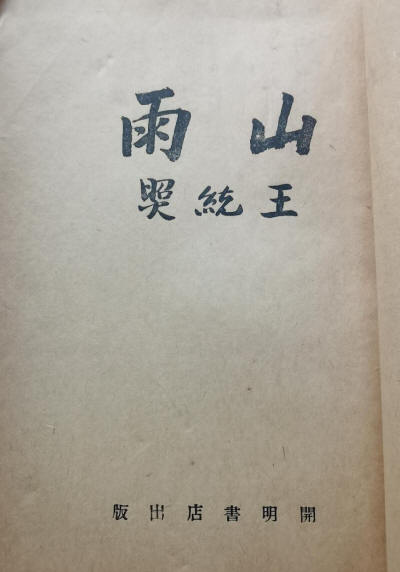 山雨
王統照
開明書店出版